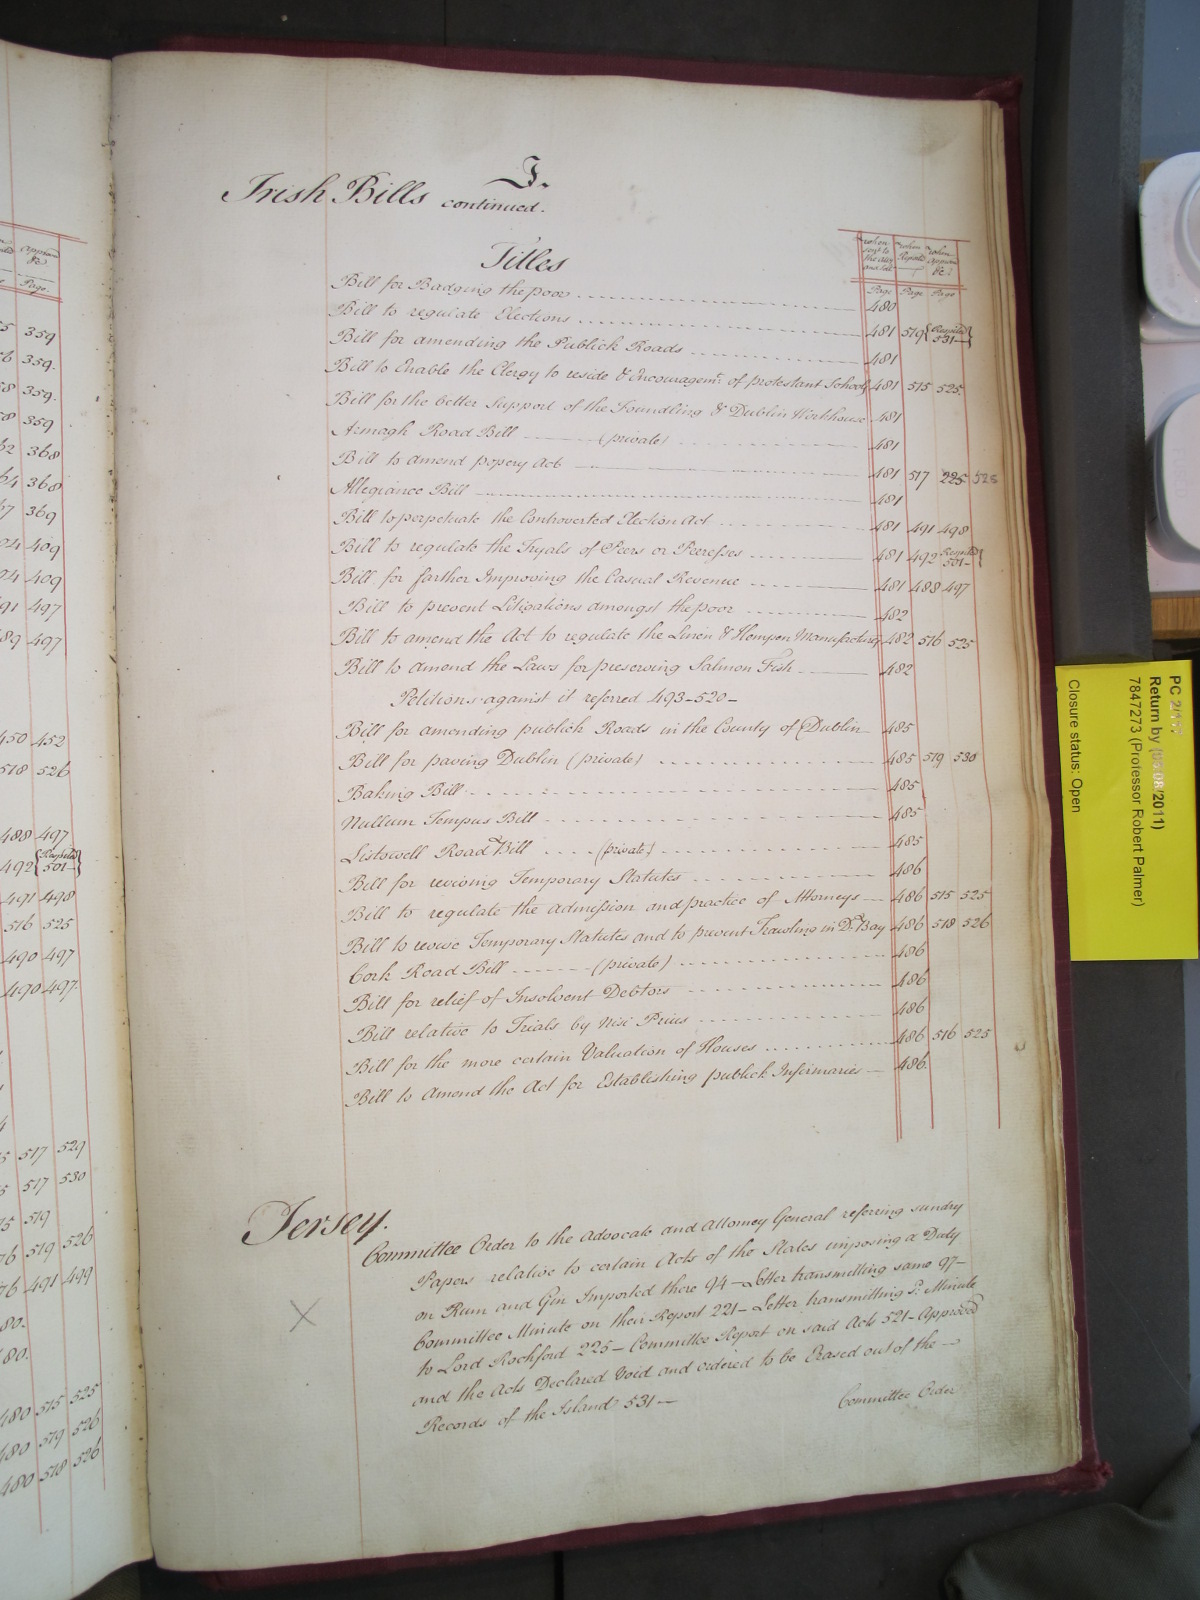 I.
Irish Bills continued.
Titles
when sent to the Atty and Sol: when Reported when approved &c:
Page Page Page
Bill for Badging the poor 480
Bill to regulate Elections 481 519 {Respited 531}
Bill for amending the Publick Roads 481
Bill to Enable the Clergy to reside & Encouragemt. of protestant Schools 481 515 525
Bill for the better Support of the Foundling & Dublin Workhouse 481
Armagh Road Bill (private) 481
Bill to amend popery Act 481 517 225 525
Allegiance Bill 481
Bill to perpetuate the Controverted Election Act 481 491 498
Bill to regulate the Tryals of Peers or Peeresses 481 492 Respited 501 }
Bill for farther Improving the Casual Revenue 481 488 497
Bill to prevent Litigations amongst the poor 482
Bill to amend the Act to regulate the Linen & Hempen Manufactury 482 516 525
Bill to amend the Laws for preserving Salmon Fish 482
Petitions against it referred 493-520-
Bill for amending publick Roads in the County of Dublin 485
Bill for paving Dublin (private) 485 519 530
Baking Bill 485
Nullum Tempus Bill 485
Listowell Road Bill (private) 485
Bill for reviving Temporary Statutes 486
Bill to regulate the admission and practice of Attorneys 486 515 525
Bill to revive Temporary Statutes and to prevent Trawling in D. Bay 486 518 526
Cork Road Bill (private) 486
Bill for relief of Insolvent Debtors 486
Bill relative to Trials by Nisi Prius 486
Bill for the more certain Valuation of Houses 486 516 525
Bill to Amend the Act for Establishing publick Infirmaries 486.
Jersey.
Committee Order to the Advocate and Attorney General referring sundry
Papers relative to certain Acts of the States imposing a Duty
on Rum and Gin Imported there 94 - Letter transmitting same 97 -
X
Committee Minute on their Report 221 - Letter transmitting sd. Minute
to Lord Rochford 225 - Committee Report on said Acts 521 - Approved
and the Acts Declared Void and ordered to be Erased out of the -
Records of the Island 531 -
Committee Order
PC 2/117
Return by (05/08/2011)
7847273 (Professor Robert Palmer)
Closure status: Open
approved &c
Page.
359
359.
359.
359
368
368
369
409
409
91 497
89 497
450 452
518 526
488 497
492 {Respited 501}
491 498
516 525
490 497
490 497.
517 529
517 530
519
519 526
491 499
80.
80.
480 515 525
480 519 526
480 518 526